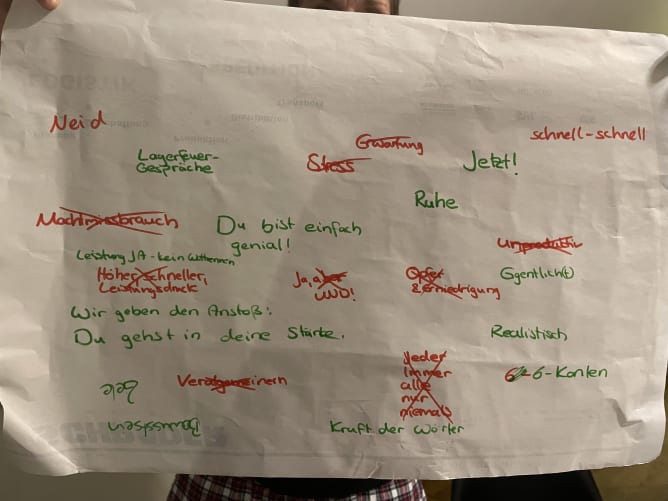 Neid
schnell-schnell
Erwartung
Lagerfeuer-
Gespräche
Stress
Jetzt!
Ruhe
Machtmissbrauch
Du bist einfach
genial!
Leistung JA - kein
Höher, schneller,
Leistungsdruck
Ja, aber
UND!
Opfer
Erniedrigung
Wir geben den Anstoß:
Du gehst in deine Stärke.
Realistisch
Verallgemeinern
Jeder
Immer
alle
nur
niemals
6-Konten
Kraft der Wörter
Bewusstsein